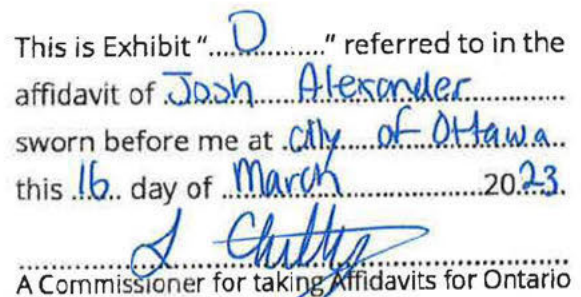 This is Exhibit "....D.........." referred to in the
affidavit of Josh Alexander
sworn before me at City of Ottawa
this 16 day of March 2023.
A Commissioner for taking Affidavits for Ontario